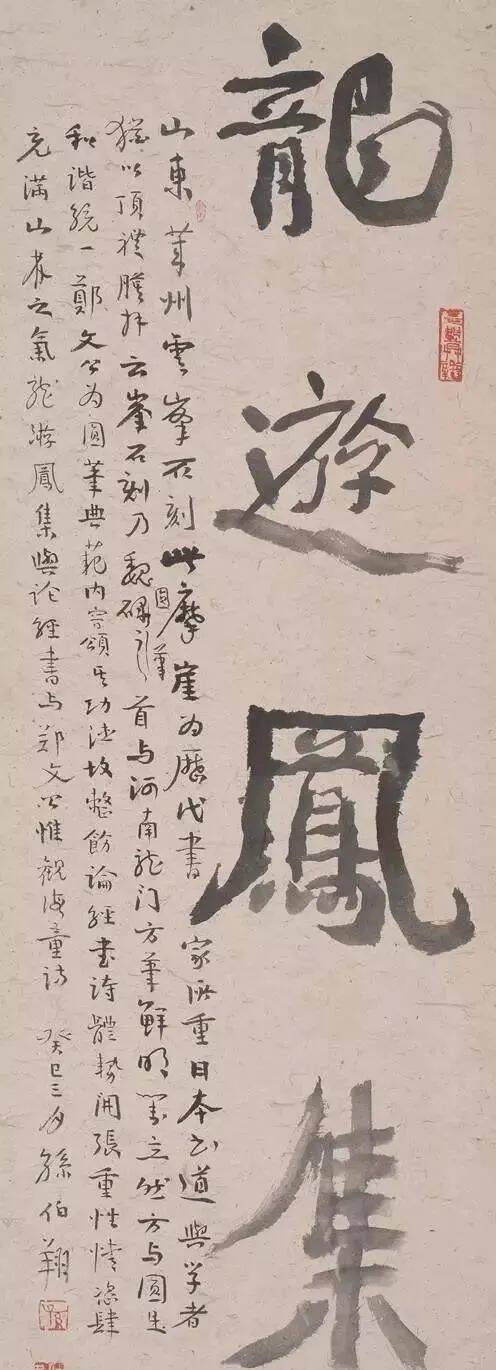 龍遊鳳集
山東莱州雲峯石刻此摩崖为歷代書家所重日本书道與学者
犹以頂禮膜拜云峯石刻乃魏碑圓筆之首与河南龍门方筆鮮明對立然方与圓是
和谐統一鄭文公为圓筆典范内容頌其功德故整飭論經書詩體勢開張重性情恣肆
充满山林之氣龍游鳳集與论經書与郑文公惟觀海童詩 癸巳三月孫伯翔